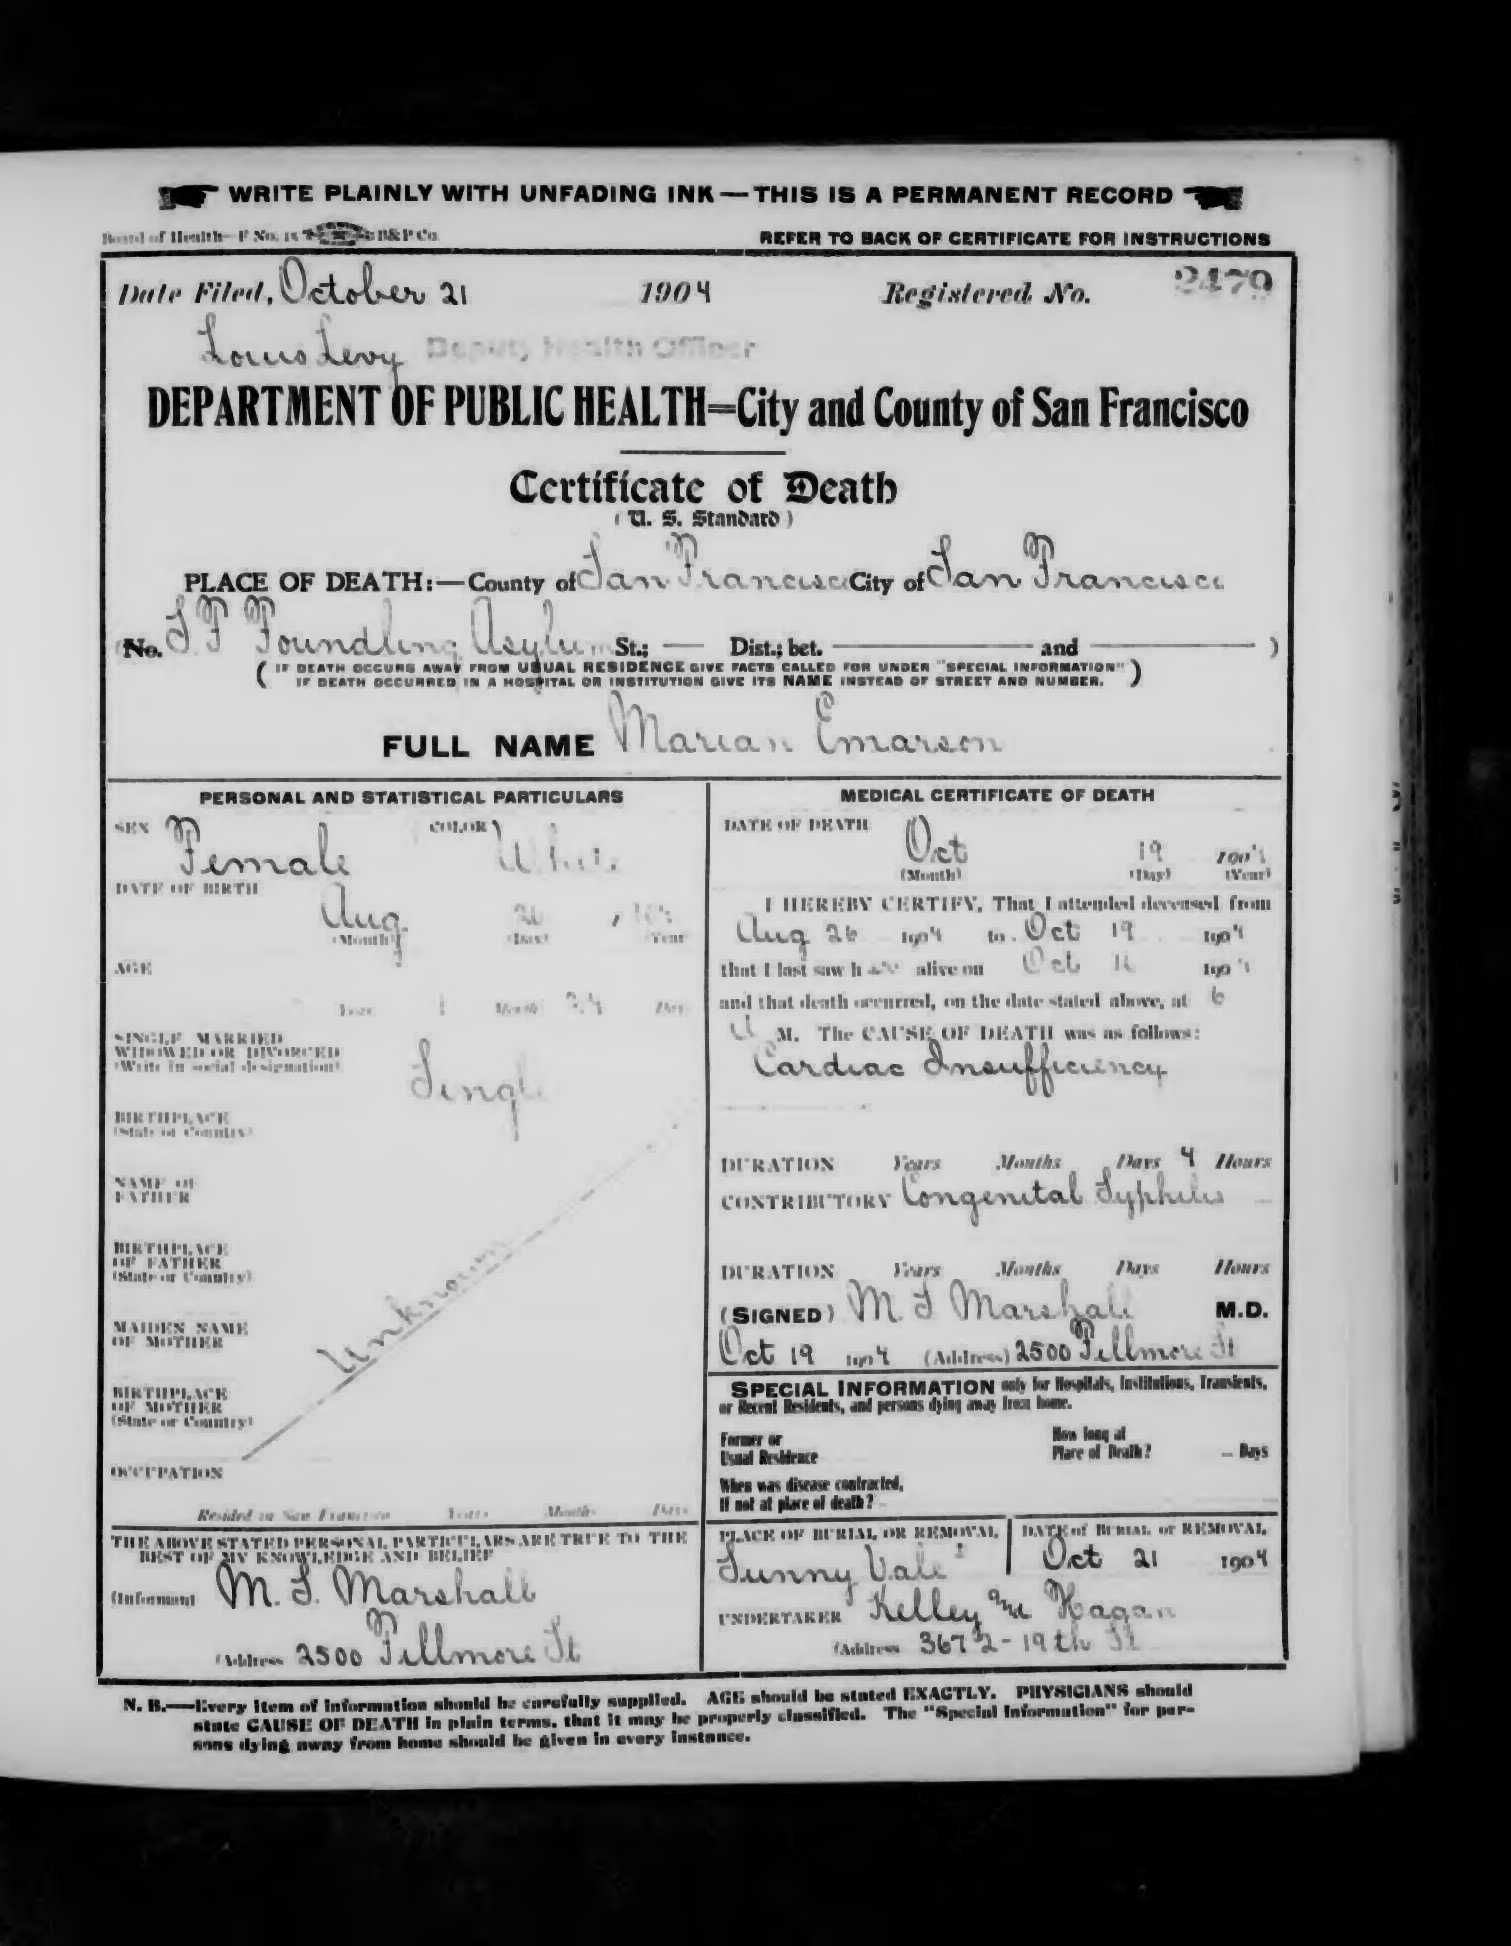 WRITE PLAINLY WITH UNFADING INK — THIS IS A PERMANENT RECORD
Board of Health—F No. 15 B&P Co.
REFER TO BACK OF CERTIFICATE FOR INSTRUCTIONS
Date Filed, October 21 1904 Registered No. 2479
Louis Levy Deputy Health Officer
DEPARTMENT OF PUBLIC HEALTH=City and County of San Francisco
Certificate of Death
(U. S. Standard)
PLACE OF DEATH:—County of San Francisco City of San Francisco
(No. S F Foundling Asylum St.; — Dist.; bet. — and — )
(IF DEATH OCCURS AWAY FROM USUAL RESIDENCE GIVE FACTS CALLED FOR UNDER "SPECIAL INFORMATION"
IF DEATH OCCURRED IN A HOSPITAL OR INSTITUTION GIVE ITS NAME INSTEAD OF STREET AND NUMBER.)
FULL NAME Marian Emarson
PERSONAL AND STATISTICAL PARTICULARS
SEX Female COLOR White
DATE OF BIRTH
Aug
(Month) (Day) (Year)
AGE
Years 1 Months 24 Days
SINGLE MARRIED
WIDOWED OR DIVORCED
(Write in social designation)
Single
BIRTHPLACE
(State or Country)
NAME OF
FATHER
BIRTHPLACE
OF FATHER
(State or Country)
Unknown
MAIDEN NAME
OF MOTHER
BIRTHPLACE
OF MOTHER
(State or Country)
OCCUPATION
Resided in San Francisco Years Months Days
THE ABOVE STATED PERSONAL PARTICULARS ARE TRUE TO THE
BEST OF MY KNOWLEDGE AND BELIEF
(Informant M. S. Marshall
(Address 2500 Fillmore St
MEDICAL CERTIFICATE OF DEATH
DATE OF DEATH
Oct 19 1904
(Month) (Day) (Year)
I HEREBY CERTIFY, That I attended deceased from
Aug 26 1904 to Oct 19 1904
that I last saw her alive on Oct 1904
and that death occurred, on the date stated above, at 6
A M. The CAUSE OF DEATH was as follows:
Cardiac Insufficiency
DURATION Years Months Days 4 Hours
CONTRIBUTORY Congenital Syphilis
DURATION Years Months Days Hours
(SIGNED) M S Marshall M.D.
Oct 19 1904 (Address) 2500 Fillmore St
SPECIAL INFORMATION only for Hospitals, Institutions, Transients,
or Recent Residents, and persons dying away from home.
Former or
Usual Residence
How long at
Place of Death? Days
When was disease contracted,
If not at place of death?
PLACE OF BURIAL OR REMOVAL
Sunny Vale
DATE of BURIAL or REMOVAL
Oct 21 1904
UNDERTAKER Kelley and Hagan
(Address 3672 - 19th St
N. B.—Every item of information should be carefully supplied. AGE should be stated EXACTLY. PHYSICIANS should
state CAUSE OF DEATH in plain terms, that it may be properly classified. The "Special Information" for per-
sons dying away from home should be given in every instance.